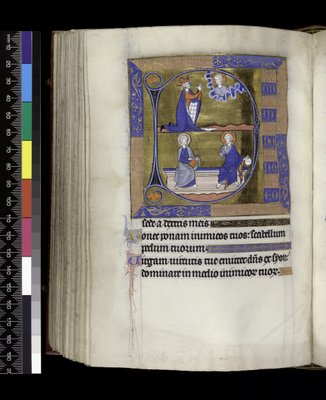 EO
sede a dextris meis
Donec ponam inimicos tuos: scabellum
pedum tuorum.
Virgam uirtutis tue emittet dns ex syon:
dominare in medio inimicor tuor.